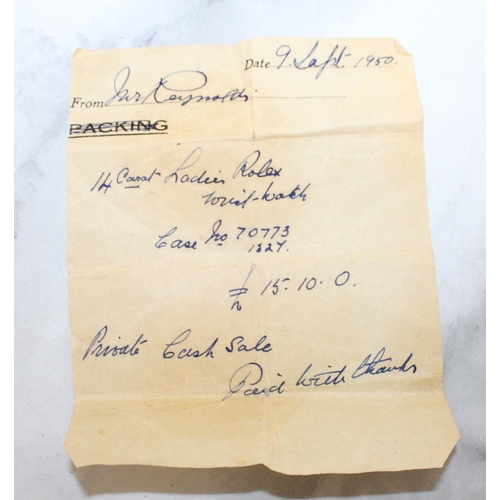 Date 9. Sept. 1950.
From Mr Reynolds.
PACKING
14 Carat Ladies Rolex
Wrist-Watch
Case No 70773
1327.
£ 15.10.0.
Private Cash Sale
Paid With thanks